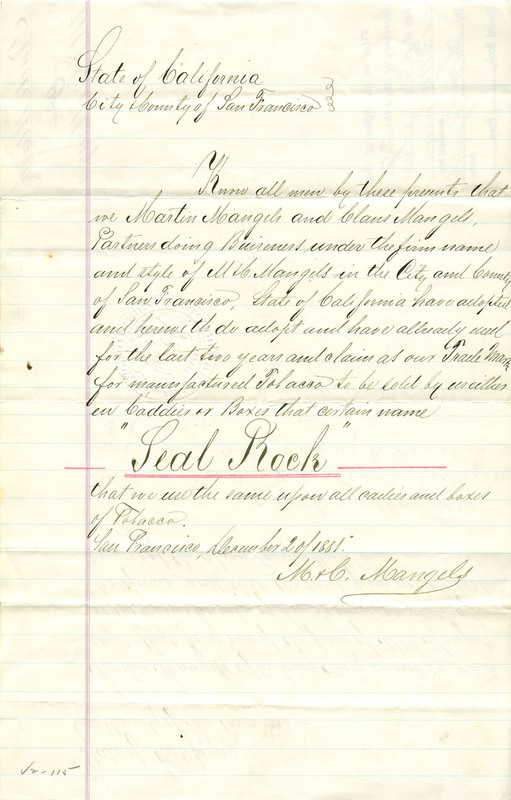 State of California
City & County of San Francisco
Know all men by these presents that
we Martin Mangels and Claus Mangels,
Partners doing Buiseness under the firm name
and style of M & C. Mangels in the City and County
of San Francisco, State of California have adopted
and herewith do adopt and have allready used
for the last two years and claim as our Trade Mark
for manufactured Tobacco to be sold by us either
in Caddies or Boxes that certain name
"Seal Rock"
that we use the same upon all cadies and boxes
of Tobacco.
San Francisco, December 2 of 1881.
M. & C. Mangels